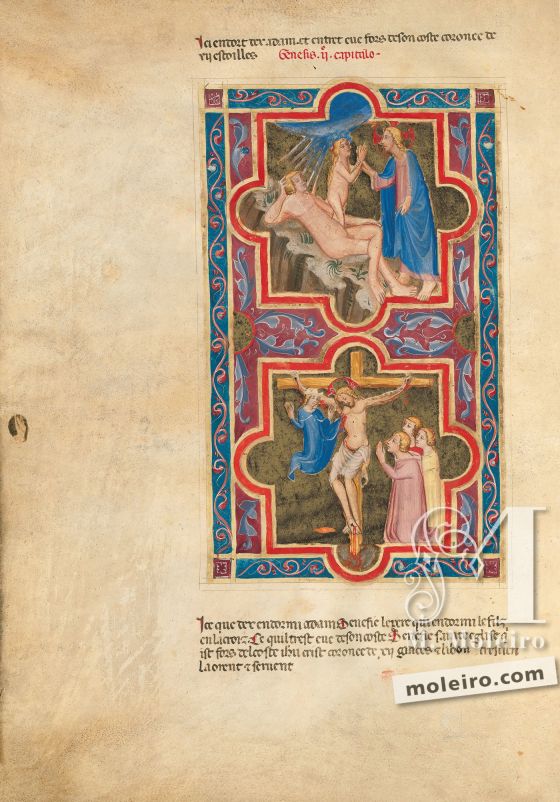 Ici endort dex adam et entret eue fors de son coste coronee de
xij estoilles Genesis .ij. capitulo
Ice que dex endormi adam senefie le pere qui endormi le filz
en la croiz Ce quil trest eue de son coste senefie sainte eglise q̃
ist fors del coste ihu crist coronee de xij
la orent & seruent
M
M Moleiro
moleiro.com